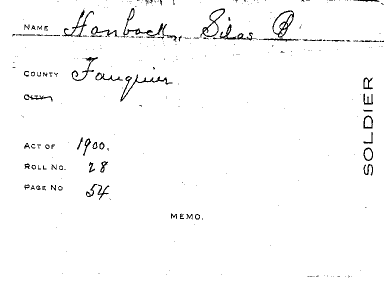 NAME Hanback, Silas B
COUNTY Fauquier
CITY
ACT OF 1900.
ROLL NO. 28
PAGE NO 54
MEMO.
SOLDIER